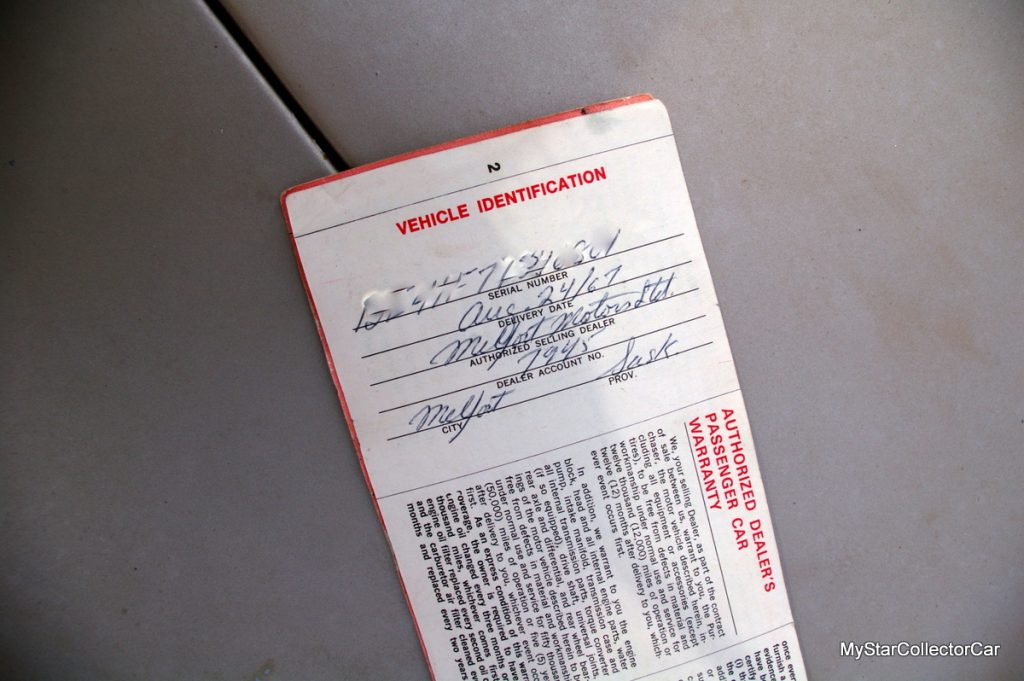 2
VEHICLE IDENTIFICATION
SERIAL NUMBER
Aug. 24/67
DELIVERY DATE
Melfort Motors Ltd.
AUTHORIZED SELLING DEALER
7945
DEALER ACCOUNT NO.
Melfort Sask.
CITY PROV.
AUTHORIZED DEALER'S
PASSENGER CAR
WARRANTY
We, your selling Dealer, as part of the contract
of sale between us, warrant to you, the Pur-
chaser, the motor vehicle described herein, in-
cluding all equipment or accessories (except
tires), to be free from defects in material and
workmanship under normal use and service for
twelve thousand (12,000) miles of operation or
twelve (12) months after delivery to you, which-
ever event occurs first.
In addition, we warrant to you the engine
block, head and all internal engine parts, water
pump, intake manifold, transmission case and
all internal transmission parts, torque converter
(if so equipped), drive shaft, universal joints,
rear axle and differential, and rear wheel bear-
ings of the motor vehicle described herein to be
free from defects in material and workmanship
under normal use and service for fifty thousand
(50,000) miles of operation or five (5) years
after delivery to you, whichever event occurs
first. As an express condition of this
coverage, the owner is required to
engine oil changed every three months
thousand miles, whichever comes first
engine oil filter replaced every second oil
and the carburetor air filter cleaned every
months and replaced every two years
once every
furnish
evidence
have
certify
MyStarCollectorCar